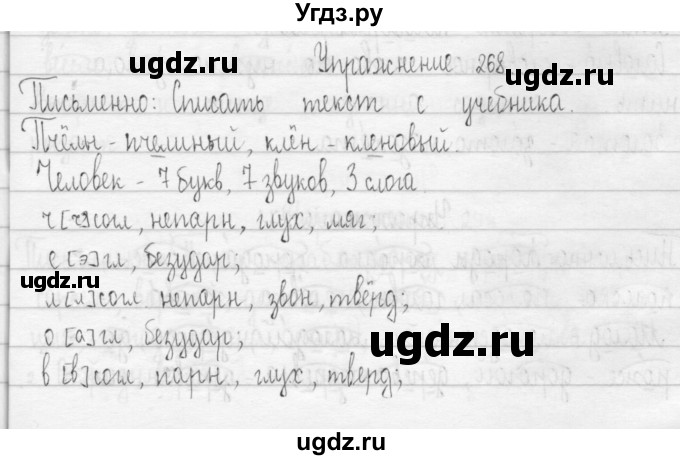 Угдз.ру
Упражнение 268
ugdz.ru ugdz.ru
Письменно: Списать текст с учебника.
Пчёлы - пчелиный, клён - кленовый
ugdz.ru
Человек - 7 букв, 7 звуков, 3 слога
ч [ч] согл, непарн, глух, мяг;
е [э] гл, безудар;
ugdz.ru
л [л] согл, непарн, звон, твёрд;
ugdz.ru
о [а] гл, безудар;
в [в] согл, парн, глух, тверд;
ugdz.ru